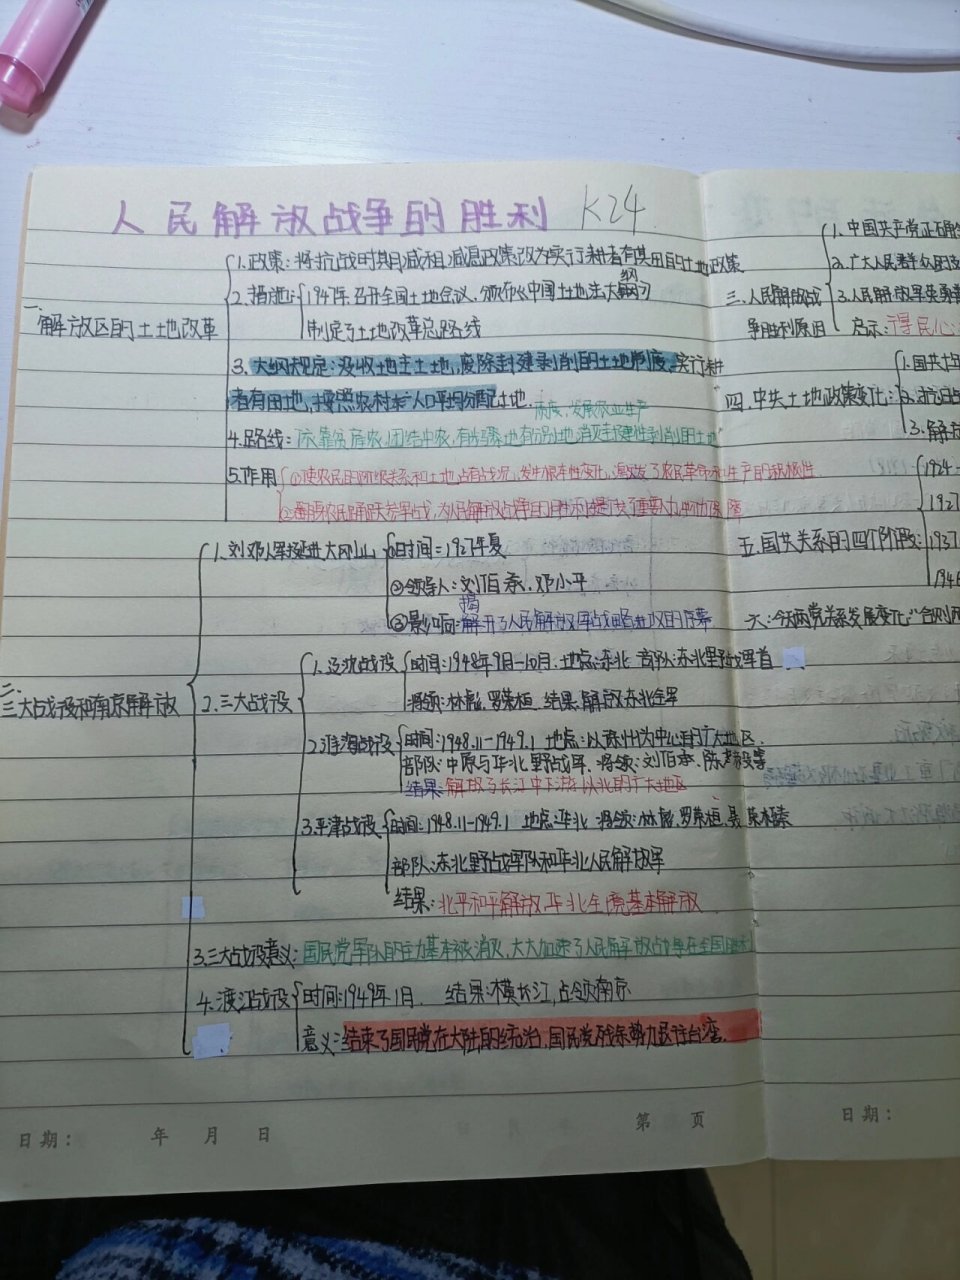 人民解放战争的胜利 K24
一、解放区的土地改革
1.政策:将抗战时期减租减息政策改为实行耕者有其田的土地政策
2.措施:1947年召开全国土地会议,颁布《中国土地法大纲》
制定了土地改革总路线
3.大纲规定:没收地主土地,废除封建剥削的土地制度,实行耕
者有田地,按照农村人口平均分配土地.
制度,发展农业生产
4.路线:依靠贫雇农,团结中农,有步骤地有分别地消灭封建性剥削的土地
5.作用
①使农民的阶级关系和土地占有状况,发生根本性变化,激发了农民革命和生产的积极性
②翻身农民踊跃参军参战,为人民解放战争的胜利提供了重要人力物力保障
二、三大战役和南京解放
1.刘邓大军挺进大别山
①时间=1927年夏
②领导人:刘伯承、邓小平
③影响:揭开了人民解放军战略进攻的序幕
2.三大战役
1.辽沈战役
时间:1948年9月-10月.地点:东北 部队:东北野战军首
将领:林彪,罗荣桓.结果:解放东北全军
2.淮海战役
时间:1948.11-1949.1 地点:以徐州为中心的广大地区.
部队:中原与华北野战军.将领:刘伯承,陈毅等
结果:解放了长江中下游以北的广大地区
3.平津战役
时间:1948.11-1949.1 地点华北 将领:林彪.罗荣桓.聂荣臻
部队:东北野战军队和华北人民解放军
结果:北平和平解放,华北全境基本解放
3.三大战役意义:国民党军队的主力基本被消灭,大大加速了人民解放战争在全国胜利
4.渡江战役
时间:1949年1月. 结果:横长江,占领南京
意义:结束了国民党在大陆的统治.国民党残余势力退往台湾.
日期: 年 月 日 第 页
三、人民解放战
争胜利原因
1.中国共产党正确
2.广大人民群众的支
3.人民解放军英勇
启示:得民心
四、中共土地政策变化:
1.国共十
2.抗日
3.解放
五.国共关系的四个阶段:
1924-
1927
1937
1946
六:今天两党关系发展变化:
日期: